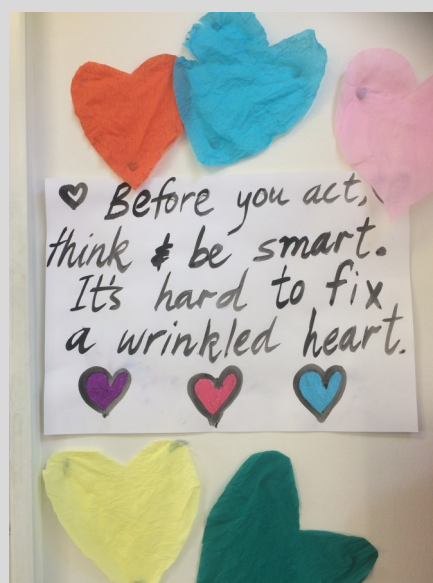 Before you act,
think & be smart.
It's hard to fix
a wrinkled heart.